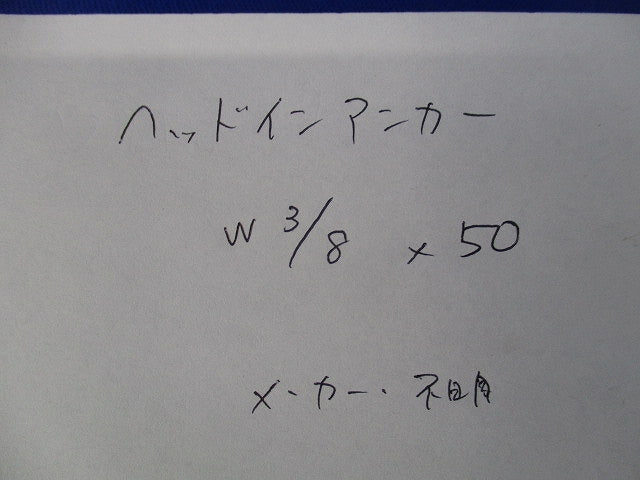 ヘッドインアンカー
W 3/8 × 50
メーカー・不明